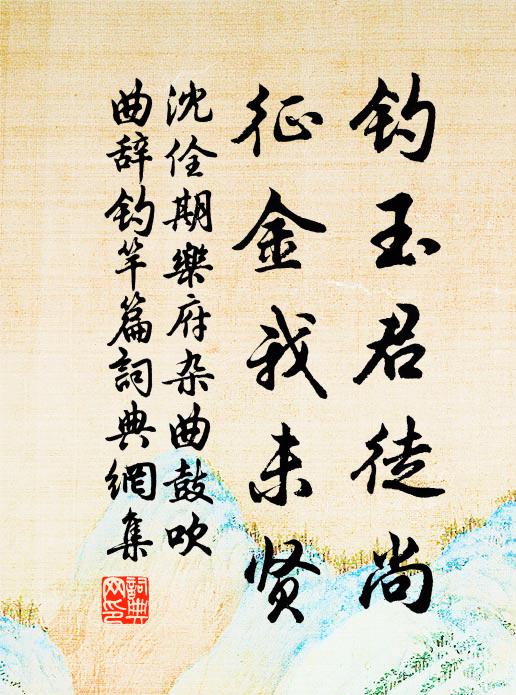 钓玉君徒尚
征金我未贤
沈佺期樂府杂曲鼓吹
曲辞钓竿篇詞典網集
詞典網印